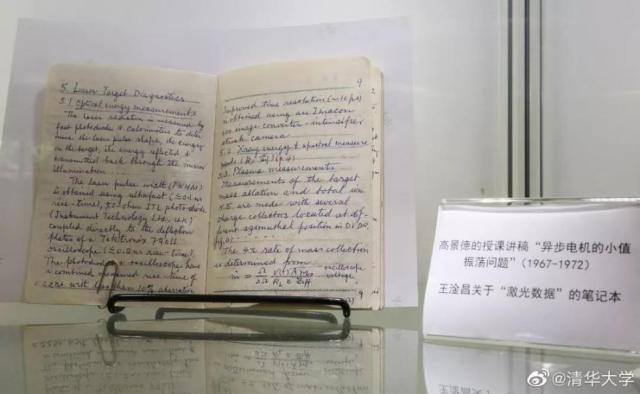 5. Laser Target Diagnostics
5.1 Optical energy measurements
The laser radiation is measured by
fast photodiodes & calorimeters to deter-
mine the laser pulse shape, the energy
on the target, the energy reflected &
transmitted back through the mirror
illumination.
The laser pulse width
is obtained using ultrafast
rise-time), 50 ohm ITL photodiode
(Instrument Technology Ltd., U.K.)
coupled directly to the deflection
plates of a Tektronix
oscilloscope rise-time).
The photodiode & oscilloscope have
a combined measured rise-time of
with less than 10% aberration
9
Improved time resolution
is obtained using an Imacon
image converter-intensifier
streak camera
5.2 X-ray energy & spectral measure
5.3 Plasma measurements
Measurements of the target
mass ablation and total ion
are made with several
charge collectors located at dif-
ferent azimuthal position in
The rate of mass collection
is determined from
oscilloscope
voltage
高景德的授课讲稿“异步电机的小值
振荡问题”(1967-1972)
王淦昌关于“激光数据”的笔记本
@清华大学